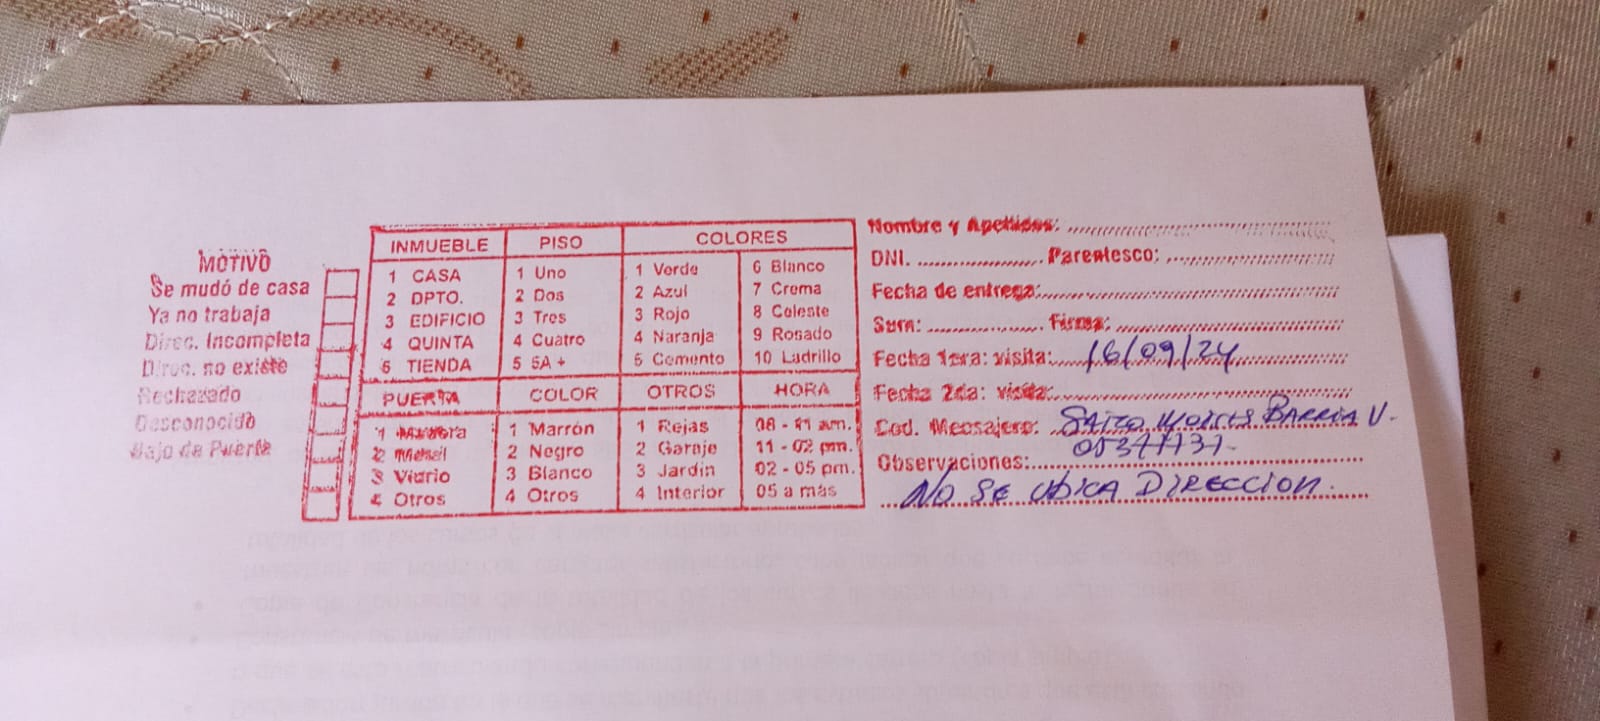 MOTIVO
Se mudó de casa
Ya no trabaja
Direc. Incompleta
Direc. no existe
Rechazado
Desconocido
Bajo de Puerta
INMUEBLE PISO COLORES
1 CASA 1 Uno 1 Verde 6 Blanco
2 DPTO. 2 Dos 2 Azul 7 Crema
3 EDIFICIO 3 Tres 3 Rojo 8 Celeste
4 QUINTA 4 Cuatro 4 Naranja 9 Rosado
5 TIENDA 5 5A + 5 Cemento 10 Ladrillo
PUERTA COLOR OTROS HORA
1 Madera 1 Marrón 1 Rejas 08 - 11 am.
2 Metal 2 Negro 2 Garaje 11 - 02 pm.
3 Vidrio 3 Blanco 3 Jardín 02 - 05 pm.
4 Otros 4 Otros 4 Interior 05 a más
Nombre y Apellidos:
DNI. Parentesco:
Fecha de entrega:
Sum: Firma:
Fecha 1era: visita: 16/09/24
Fecha 2da: visita:
Cod. Mensajero: BARRIA V.
Observaciones:
NO SE UBICA DIRECCION.